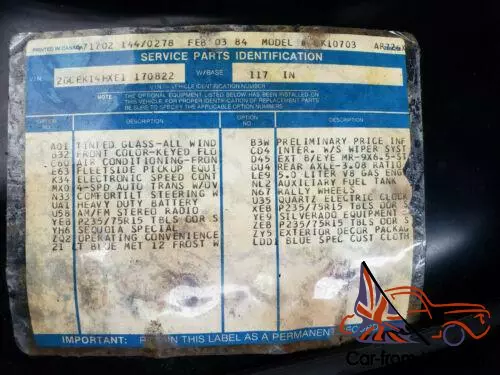 PRINTED IN CANADA 71702 144/0278 FEB 03 84 MODEL # CK10703
SERVICE PARTS IDENTIFICATION
VIN 170822 W/BASE 117 IN
V.I.N. – VEHICLE IDENTIFICATION NUMBER
NOTE THE OPTIONAL EQUIPMENT LISTED BELOW HAS BEEN INSTALLED
ON THIS VEHICLE. FOR PROPER IDENTIFICATION OF REPLACEMENT PARTS
BE SURE TO SPECIFY THE APPLICABLE OPTION NUMBER.
OPTION NO. DESCRIPTION OPTION NO. DESCRIPTION
A01 TINTED GLASS-ALL WIND B3W PRELIMINARY PRICE INF
B32 FRONT COLOR-KEYED FLO CD4 INTER. W/S WIPER SYST
AIR CONDITIONING-FRON D45 EXT B/EYE MR-9X6.5-ST
E63 FLEETSIDE PICKUP EQUI GU4 RR AXLE-3.08 RATIO
K34 ELECTRONIC SPEED CONT LE9 5.0 LITER V8 GAS ENG
MX0 4-SPD AUTO TRANS W/OV NL2 AUXILIARY FUEL TANK
N33 COMFORTILT STEERING W N67 RALLY WHEELS
UA1 HEAVY DUTY BATTERY U35 QUARTZ ELECTRIC CLOCK
U58 AM/FM STEREO RADIO XEB P235/75R15 TBLS OOR S
YEB P235/75R15 TBLS OOR S YE9 SILVERADO EQUIPMENT
YH6 SEQUOIA SPECIAL ZEB P235/75R15 TBLS OOR S
ZQ2 OPERATING CONVENIENCE ZY5 EXTERIOR DECOR PACKAG
21 LT BLUE MET 12 FROST W LDD1 BLUE SPEC CUST CLOTH
IMPORTANT: RETAIN THIS LABEL AS A PERMANENT RECORD
Car-from